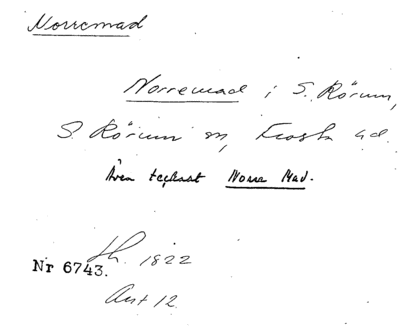 Norremad
Norremad i S. Rörum,
S. Rörum sn, Frosta hd.
Även tecknat Norra Mad.
1822
Nr 6743.
Art 12.